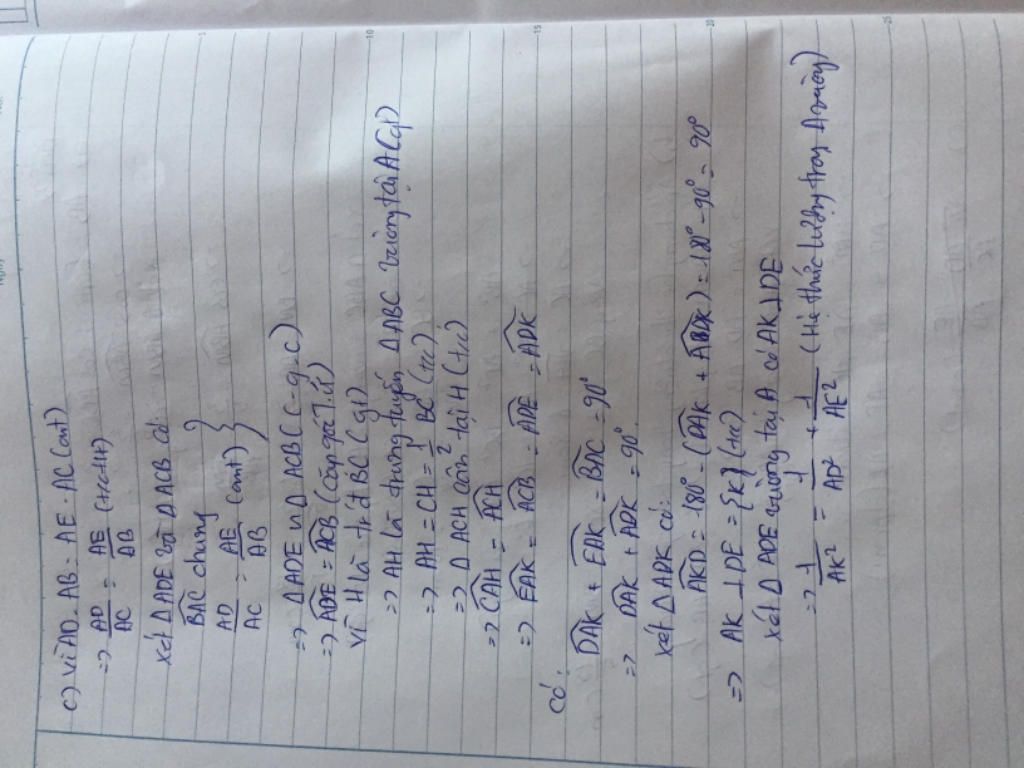 c) Vì AD . AB = AE . AC (cmt)
=> AD/AC = AE/AB (tc tlt)
xét Δ ADE và Δ ACB có:
BAC chung
AD/AC = AE/AB (cmt)
=> Δ ADE ∽ Δ ACB (c-g-c)
=> ADE = ACB (cặp góc T.Ứ)
Vì H là tr.đ BC (gt)
=> AH là trung tuyến Δ ABC vuông tại A (gt)
=> AH = CH = 1/2 BC (tc)
=> Δ ACH cân tại H (tc)
=> CAH = ACH
=> EAK = ACB = ADE = ADK
Có:
DAK + EAK = BAC = 90°
=> DAK + ADK = 90°
xét Δ ADK có:
AKD = 180° - (DAK + ADK) = 180° - 90° = 90°
=> AK ⊥ DE = {K} (tc)
xét Δ ADE vuông tại A có AK ⊥ DE
=> 1/AK² = 1/AD² + 1/AE² (Hệ thức lượng trong Δ vuông)